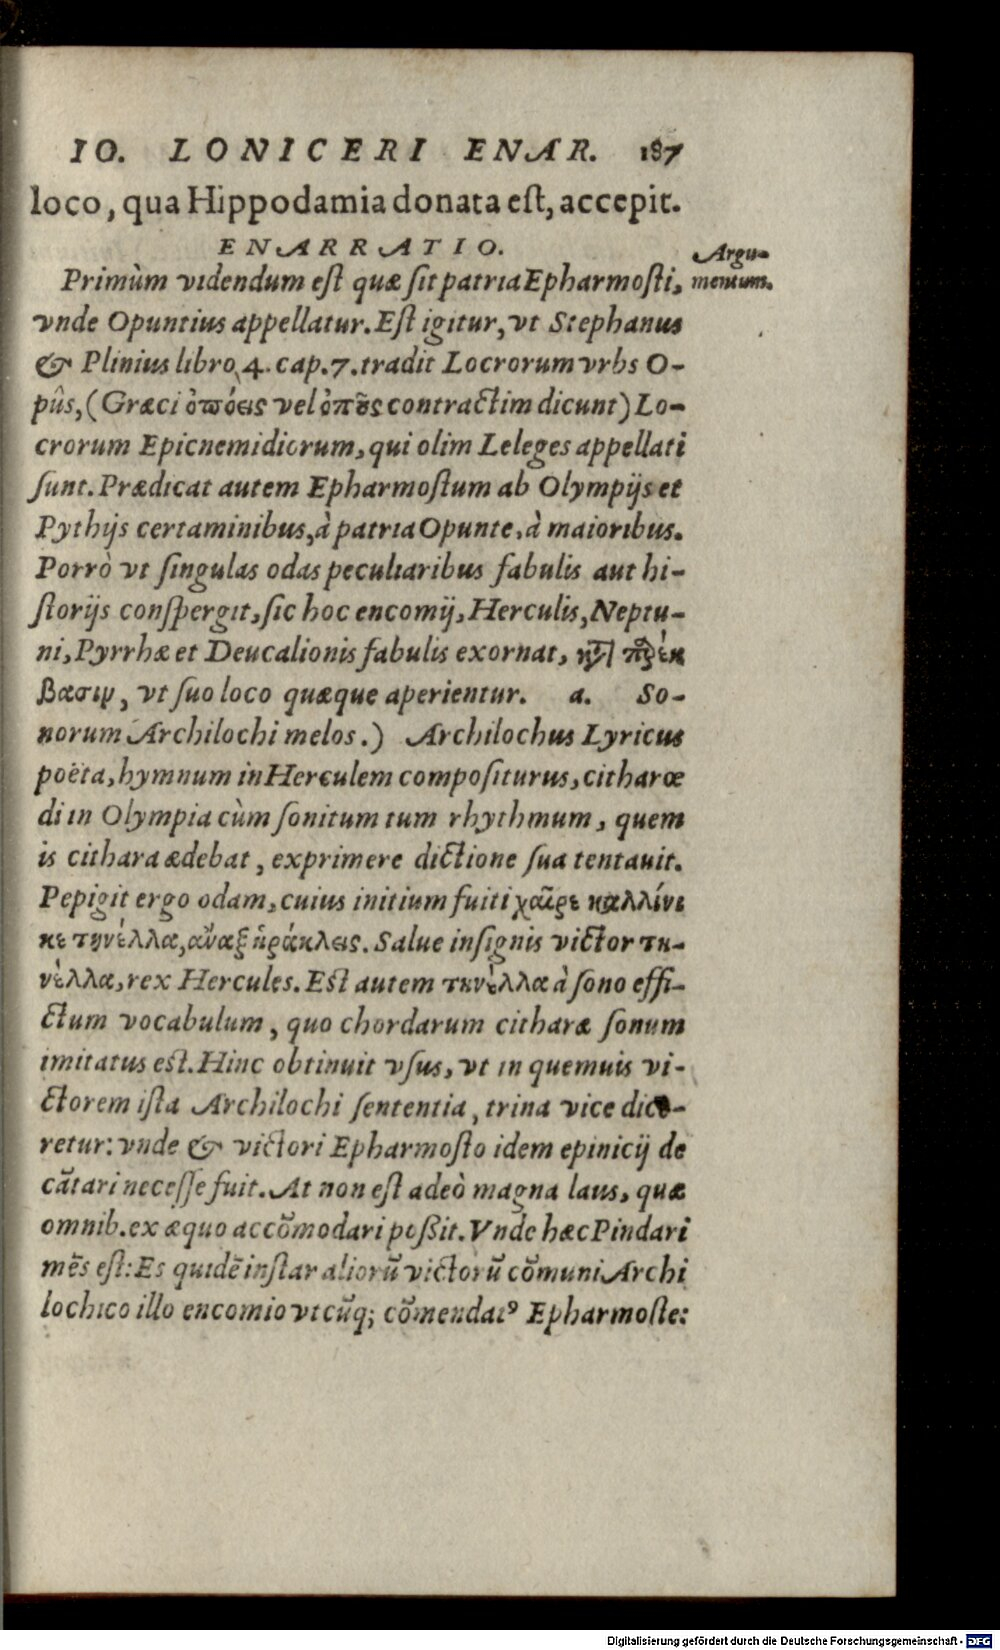 IO. LONICERI ENAR. 187
loco, qua Hippodamia donata est, accepit.
ENARRATIO.
Argu-
mentum.
Primùm videndum est quæ sit patria Epharmosti,
vnde Opuntius appellatur. Est igitur, vt Stephanus
& Plinius libro 4. cap. 7. tradit Locrorum vrbs O-
pûs, (Græci ὀπόεις vel ὀποῦς contractim dicunt) Lo-
crorum Epicnemidiorum, qui olim Leleges appellati
sunt. Prædicat autem Epharmostum ab Olympijs et
Pythijs certaminibus, à patria Opunte, à maioribus.
Porrò vt singulas odas peculiaribus fabulis aut hi-
storijs conspergit, sic hoc encomij, Herculis, Neptu-
ni, Pyrrhæ et Deucalionis fabulis exornat, κατὰ παρέκ
βασιν, vt suo loco quæque aperientur. a. So-
norum Archilochi melos.) Archilochus Lyricus
poëta, hymnum in Herculem compositurus, citharœ
di in Olympia cùm sonitum tum rhythmum, quem
is cithara ædebat, exprimere dictione sua tentauit.
Pepigit ergo odam, cuius initium fuit χαῖρε καλλίνι
κε τηνέλλα, ἄναξ ἡράκλεις. Salue insignis victor τη-
νέλλα, rex Hercules. Est autem τηνέλλα à sono effi-
ctum vocabulum, quo chordarum citharæ sonum
imitatus est. Hinc obtinuit vsus, vt in quemuis vi-
ctorem ista Archilochi sententia, trina vice dice-
retur: vnde & victori Epharmosto idem epinicij de
cātari necesse fuit. At non est adeò magna laus, quæ
omnib. ex æquo accōmodari poßit. Vnde hæc Pindari
mēs est: Es quidē instar aliorū victorū cōmuni Archi
lochico illo encomio vtcūq; cōmendatꝰ Epharmoste:
Digitalisierung gefördert durch die Deutsche Forschungsgemeinschaft - DFG